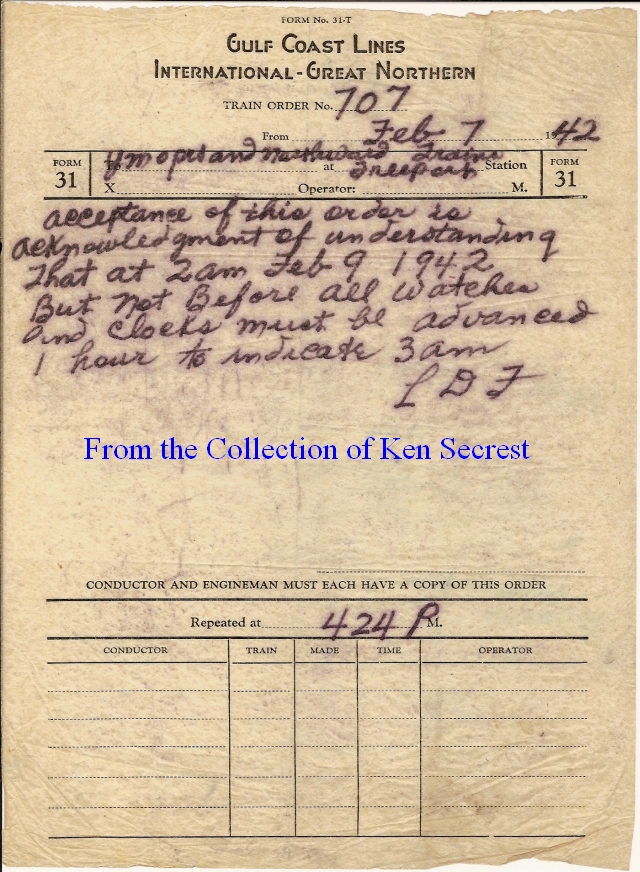 FORM No. 31-T
GULF COAST LINES
INTERNATIONAL-GREAT NORTHERN
TRAIN ORDER No. 707
From Feb 7 1942
FORM 31
To ymoprs and Northward Trains
at Freeport Station
X Operator: M.
FORM 31
acceptance of this order is
acknowledgment of understanding
That at 2am Feb 9 1942
But Not Before all watches
and clocks must be advanced
1 hour to indicate 3am
L D F
From the Collection of Ken Secrest
CONDUCTOR AND ENGINEMAN MUST EACH HAVE A COPY OF THIS ORDER
Repeated at 424 P M.
CONDUCTOR TRAIN MADE TIME OPERATOR